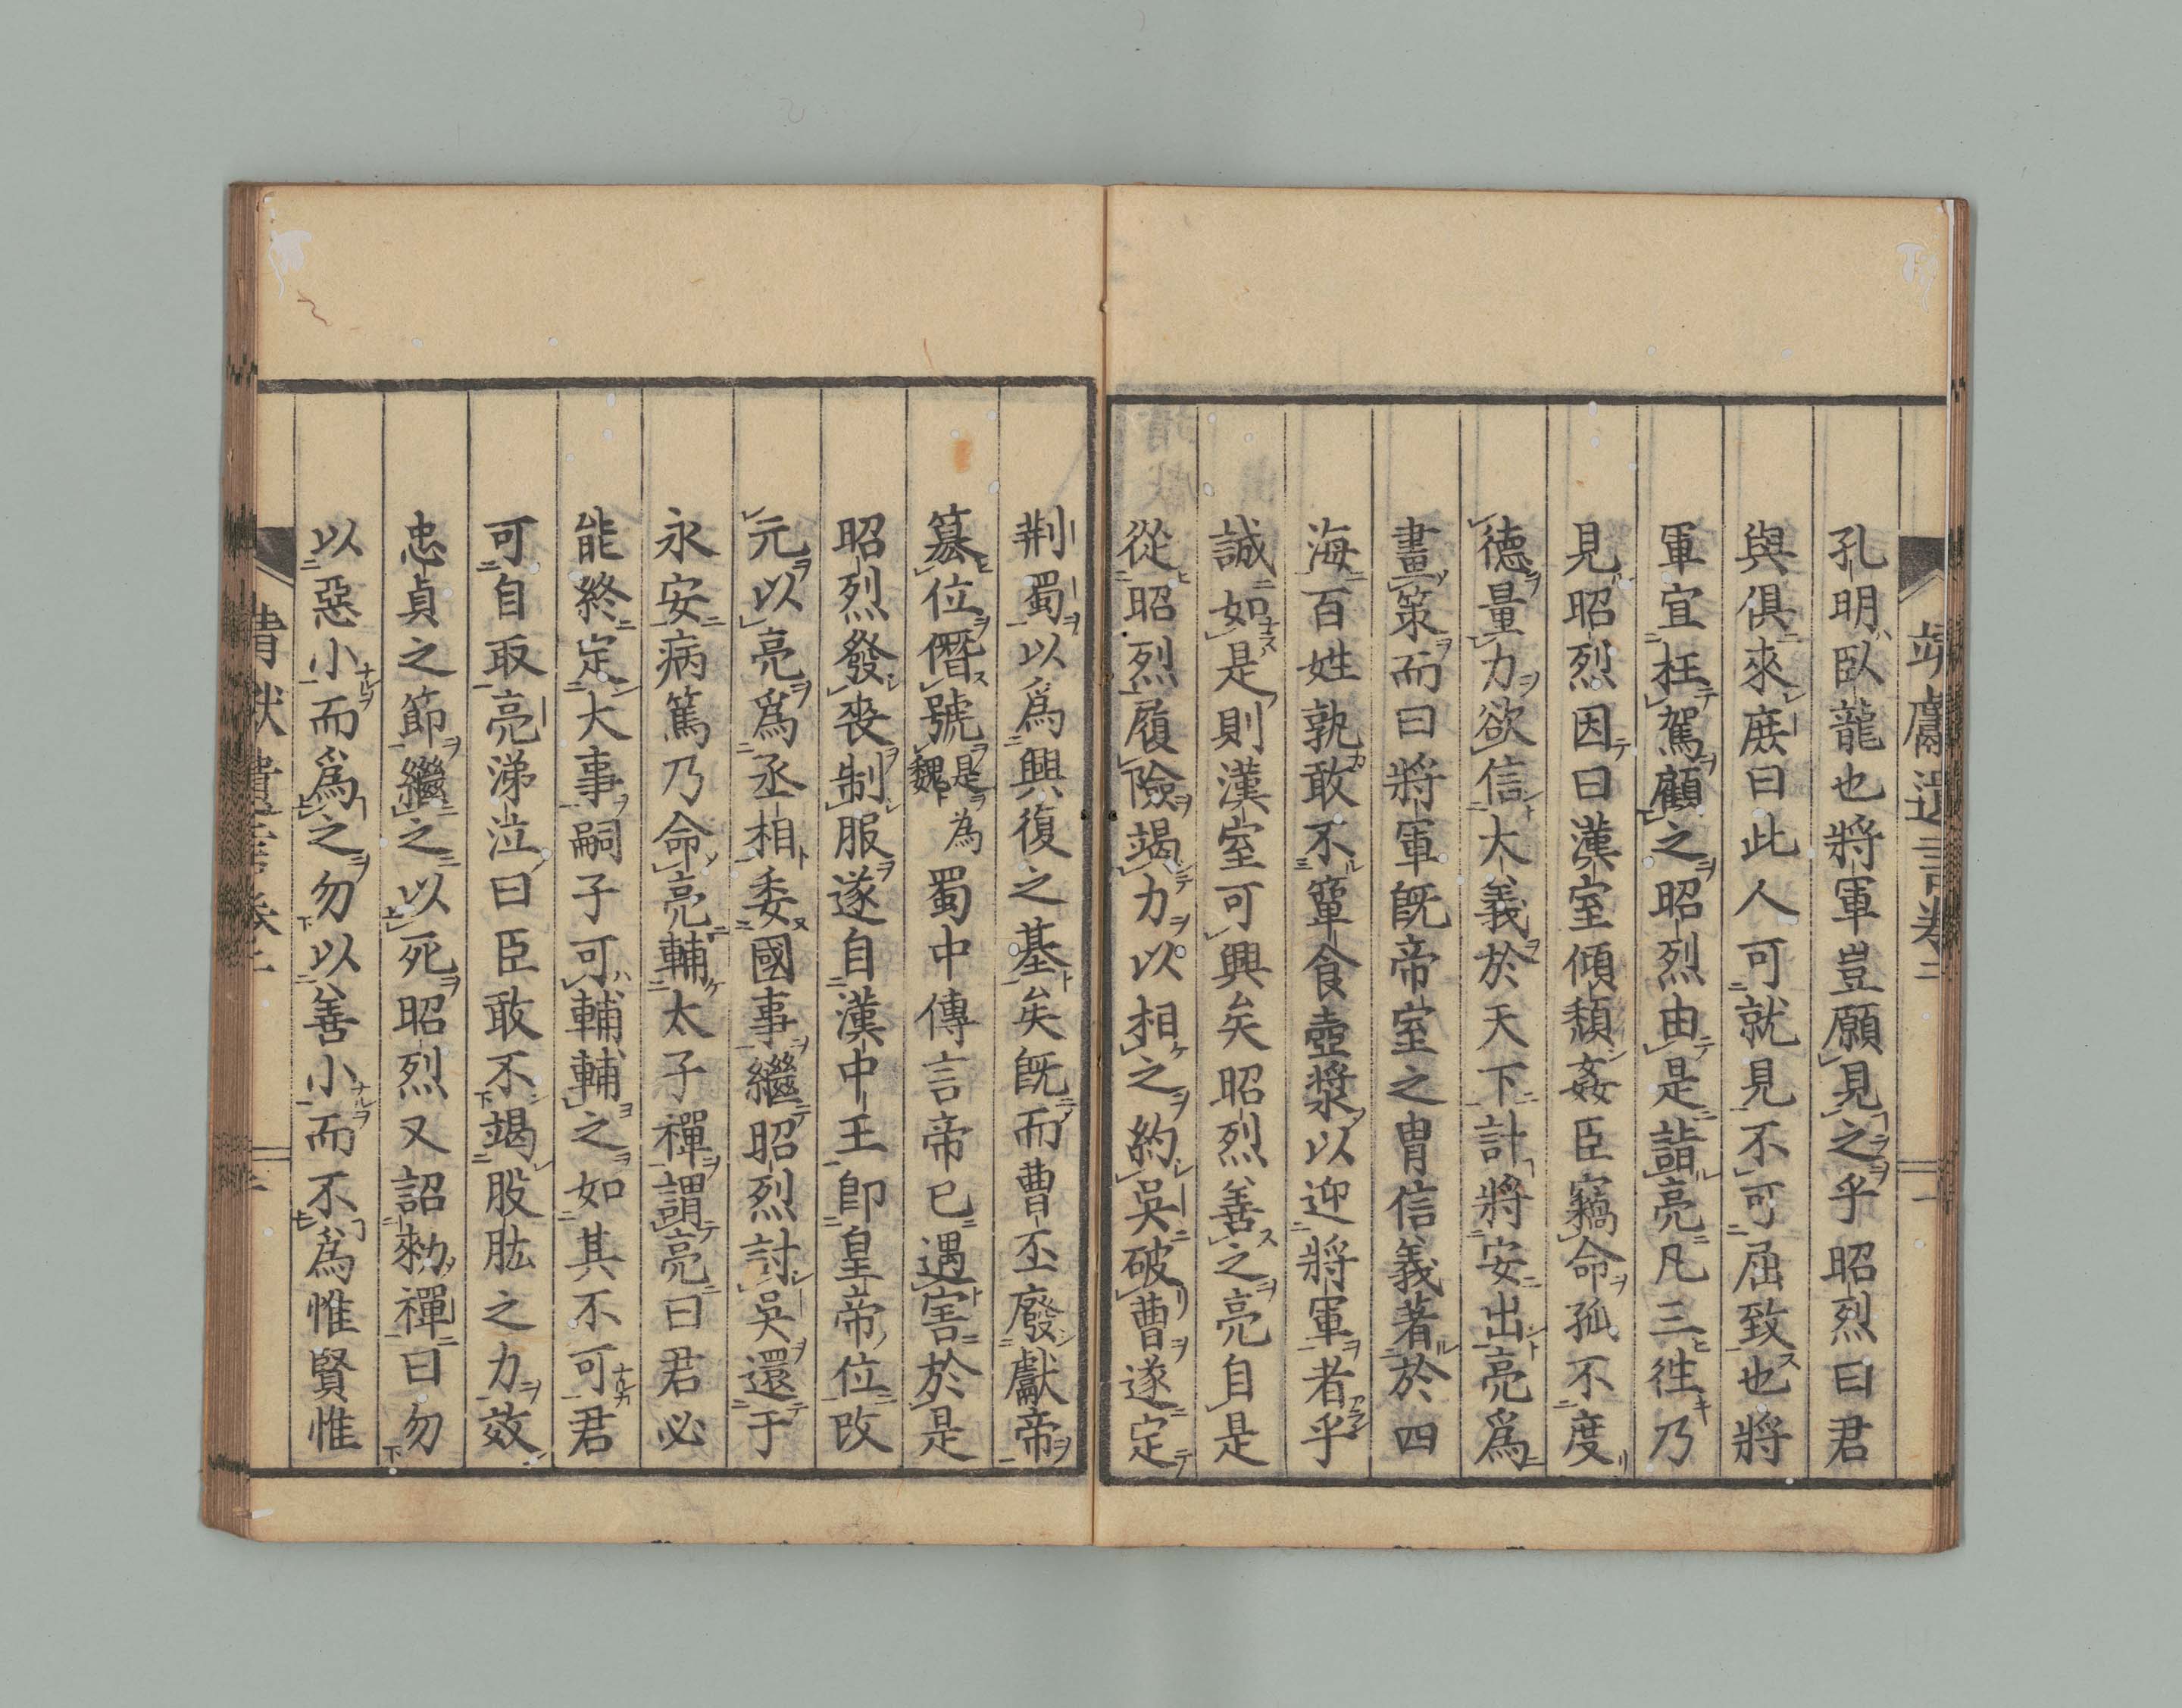 孔明臥龍也將軍豈願見之乎昭烈曰君
與俱來庶曰此人可就見不可屈致也將
軍宜枉駕顧之昭烈由是詣亮凡三徃乃
見昭烈因曰漢室傾頹姦臣竊命孤不度
德量力欲信大義於天下計將安出亮爲
畫策而曰將軍旣帝室之冑信義著於四
海百姓孰敢不簞食壺漿以迎將軍者乎
誠如是則漢室可興矣昭烈善之亮自是
從昭烈履險竭力以相之約吳破曹遂定
荆蜀以爲興復之基矣旣而曹丕廢獻帝
簒位僭號是為魏蜀中傳言帝已遇害於是
昭烈發丧制服遂自漢中王卽皇帝位改
元以亮爲丞相委國事繼昭烈討吳還于
永安病篤乃命亮輔太子禪謂亮曰君必
能終定大事嗣子可輔輔之如其不可君
可自取亮涕泣曰臣敢不竭股肱之力效
忠貞之節繼之以死昭烈又詔勑禪曰勿
以惡小而爲之勿以善小而不爲惟賢惟